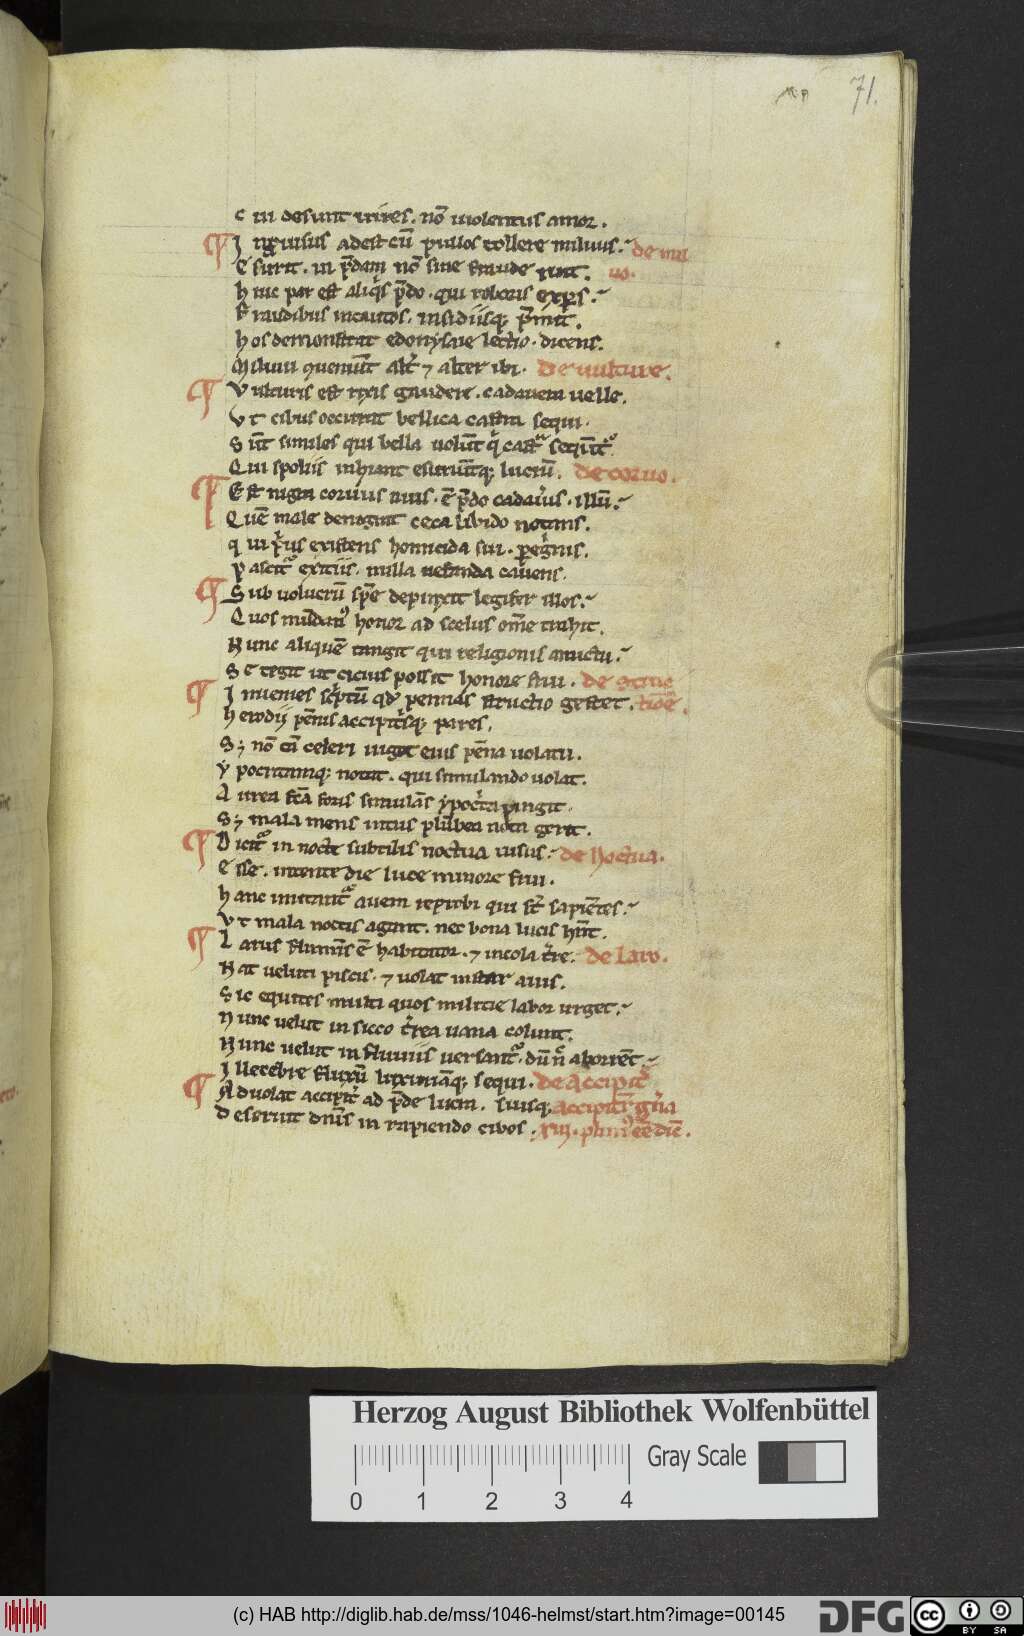 71.
C ui desunt uires. nō uiolentus amor.
¶ I ngruisus adest cū pullos tollere miluus. de mil
E surit. in p̄dam nō sine fraude ruit. uo.
h uic par est aliq̄s p̄do. qui roboris exp̄s.
F raudibus incautos. insidiisq; p̄mit.
h os demonstrat edonysaie lectio. dicens.
M iluui quenūt alt̄ ⁊ alter ibi. De uulture.
¶ V ulturis est rixis gaudere. cadauera uelle.
V t cibus occurrat bellica castra sequi.
S ūt similes qui bella uolūt q̄ castra sequūt᷑
Q ui spoliis inhiant esuriūtq; lucrū. de coruo.
¶ E st nigra coruus auis. ē p̄do cadau̾is. illū.
Q uē male denigrat ceca libido notans.
q ui p̾us existens homicida sui. pegrinis.
P ascit᷑ exitiis. nulla nefanda cauens.
¶ S ub uolucrū sp̄e depinxit legifer illos.
Q uos mūdanꝰ honor ad scelus om̄e trahit.
N unc aliquē tangit qui religionis amictu.
S e tegit ut cicius possit honore frui. de struc
¶ I nuenies sc̾ptū qd̾ pennas structio gestet. tiōe.
h erodii pēnis accipit̾sq; pares.
S; nō tā celeri uiget eius pēna uolatu.
Y pocritamq; notat. qui simulando uolat.
A urea fc̄a foris simulās ypoc̾ta pingit.
S; mala mens intus plūbea nota gerit.
¶ D icit᷑ in nocte subtilis noctua uisus. de Noctua.
E sse. intente die luce minore frui.
h anc imitant᷑ auem reprobi qui st̄ sapiētes.
V t mala noctis agant. nec bona lucis hn̄t.
¶ L arus flumīs ē habitator. ⁊ incola t̾re. de Laro.
N at ueluti piscis. ⁊ uolat instar auis.
S ic equites multi quos militie labor urget.
N unc uelut in sicco t̾rea uana colunt.
N unc uelut in fluuiis uersant᷑. dū n̄ aborrēt
I llecebre fluxū luxuriāq; sequi. de Accipit̾
¶ A duolat accipit̾ ad p̄de lucra. suisq; accipitr̄ gn̄a
D eseruit dn̄is in rapiendo cibos. xiii. plīniꝰ eē dic̄.
Herzog August Bibliothek Wolfenbüttel
Gray Scale
0 1 2 3 4
(c) HAB http://diglib.hab.de/mss/1046-helmst/start.htm?image=00145
DFG
cc BY SA